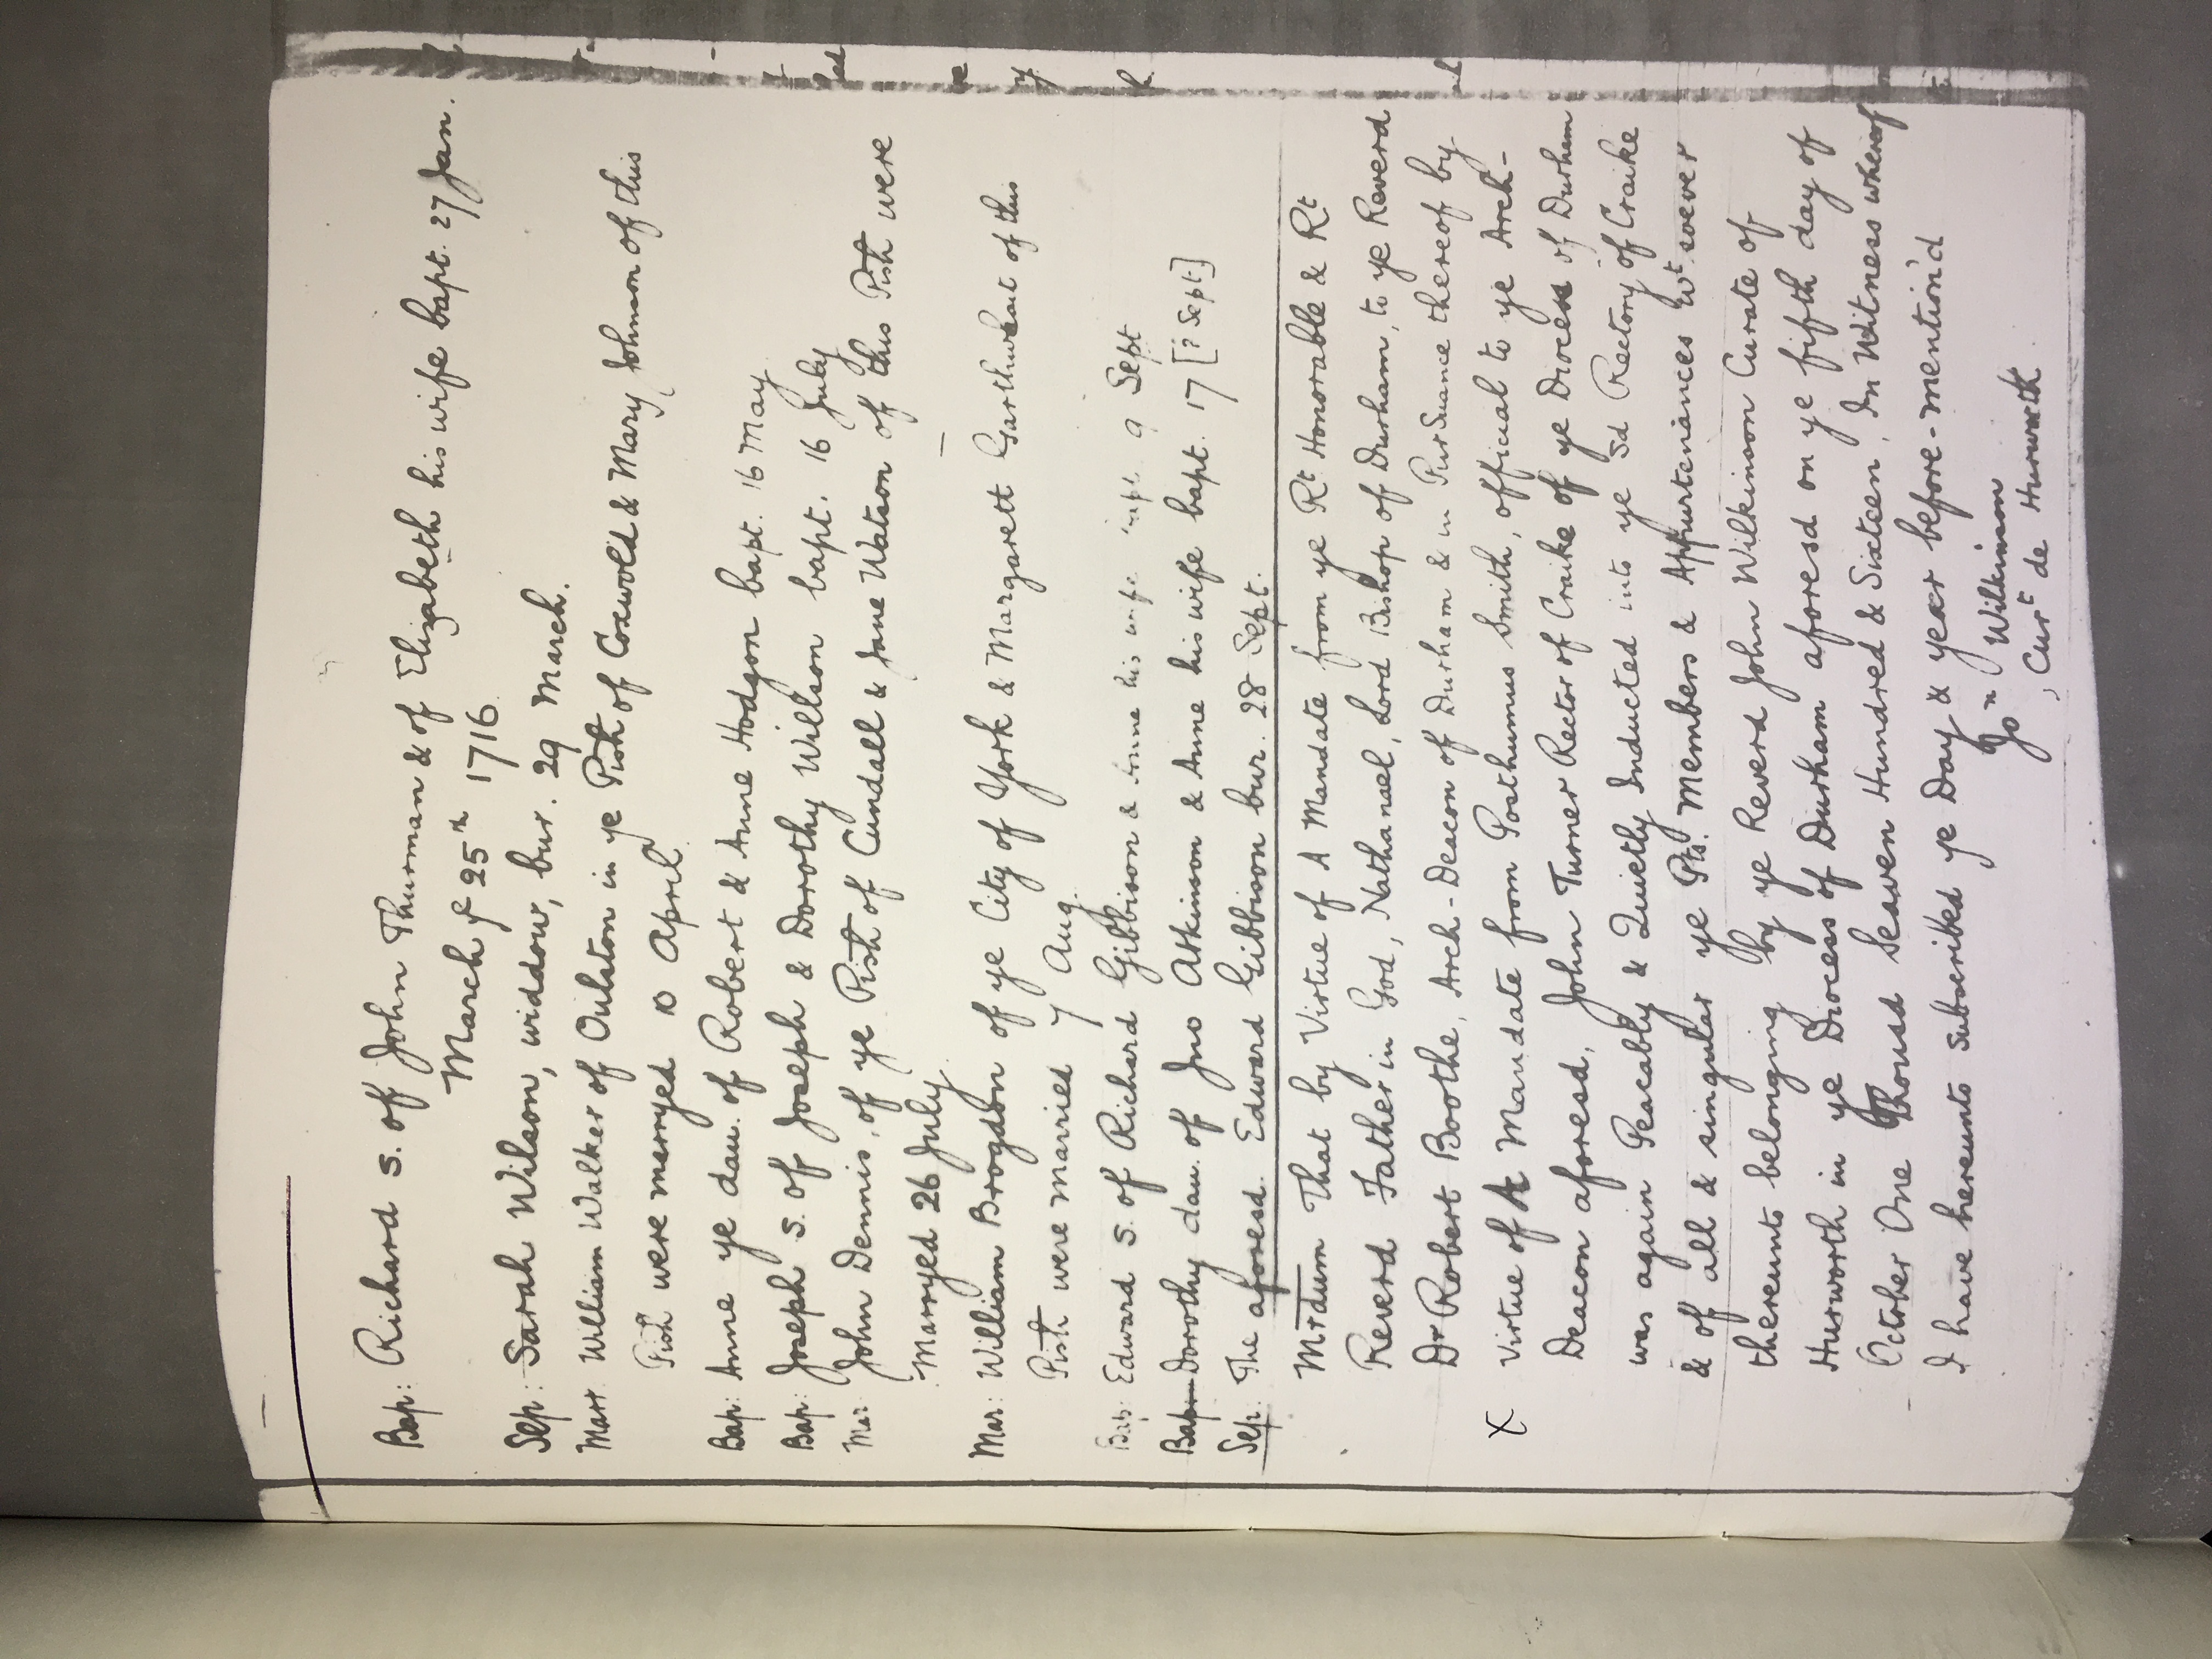 Bap: Richard s. of John Thurman & of Elizabeth his wife bapt. 27 Jan.
March ye 25th 1716.
Sep: Sarah Wilson, widdow, bur. 29 March.
Marr. William Walker of Oulston in ye Pish of Coxwold & Mary Johnson of this
Pish were marryed 10 April
Bap: Anne ye dau. of Robert & Anne Hodgson bapt. 16 May
Bap: Joseph s. of Joseph & Dorothy Willson bapt. 16 July
Mar: John Dennis, of ye Pish of Cundall & Jane Watson of this Pish were
Marryed 26 July
Mar: William Brogdon of ye City of York & Margarett Garthwhait of this
Pish were married 7 Aug.
Bap: Edward s. of Richard Gibbison & Anne his wife bapt. 9 Sept
Bap: Dorothy dau. of Jno Atkinson & Anne his wife bapt. 17 [? Sept]
Sep: The aforesd. Edward Gibbison bur. 28 Sept.
Mrdum That by Virtue of A Mandate from ye Rt Honorable & Rt
Reverd Father in God, Nathanael, Lord Bishop of Durham, to ye Reverd.
Dr Robert Boothe, Arch-Deacon of Durham & in PurSuance thereof by
X Virtue of A Mandate from Posthumus Smith, official to ye Arch-
Deacon aforesd, John Turner Rector of Craike of ye Diocess of Durham
was again Peacably & Quietly Inducted into ye Sd Rectory of Craike
& of all & singular ye Pts. Members & Appurtenances Wt soever
thereunto belonging by ye Reverd John Wilkinson Curate of
Hurworth in ye Diocess of Durham aforesd on ye fifth day of
October One Thousd Seaven Hundred & Sixteen, In Witness whereof
I have hereunto subscribed ye Day & year before-mention'd
Jon Wilkinson
Curt de Hurworth